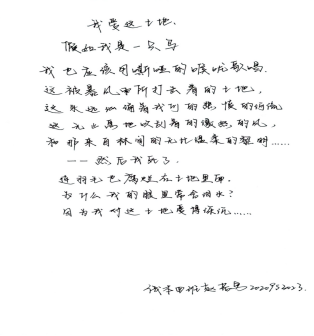 我爱这土地.
假如我是一只鸟
我也应该用嘶哑的喉咙歌唱.
这被暴风雨所打击着的土地,
这永远汹涌着我们的悲愤的河流,
这无止息地吹刮着的激怒的风,
和那来自林间的无比温柔的黎明……
——然后我死了.
连羽毛也腐烂在土地里面.
为什么我的眼里常含泪水?
因为我对这土地爱得深沉……
2020952023.